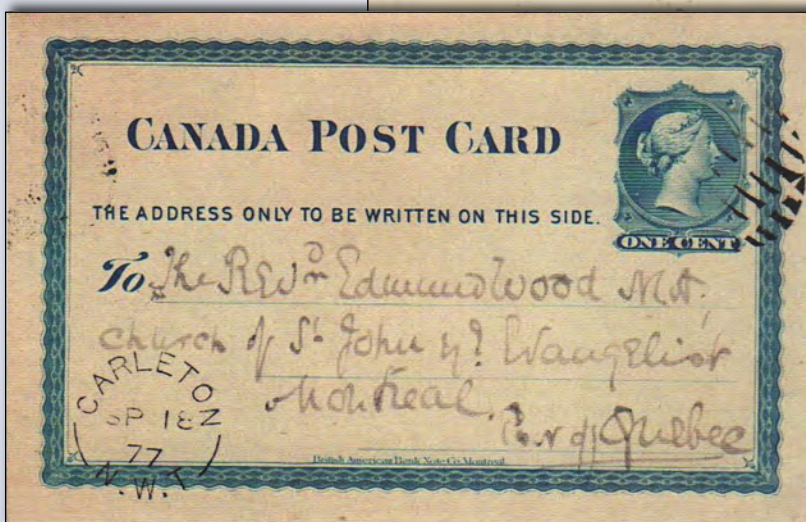 CANADA POST CARD
THE ADDRESS ONLY TO BE WRITTEN ON THIS SIDE.
ONE CENT
To The Revd Edmund Wood M.A.
Church of St John ye Evangelist
Montreal.
Prov of Quebec
CARLETON
SP 18
77
N.W.T
British American Bank Note Co. Montreal.